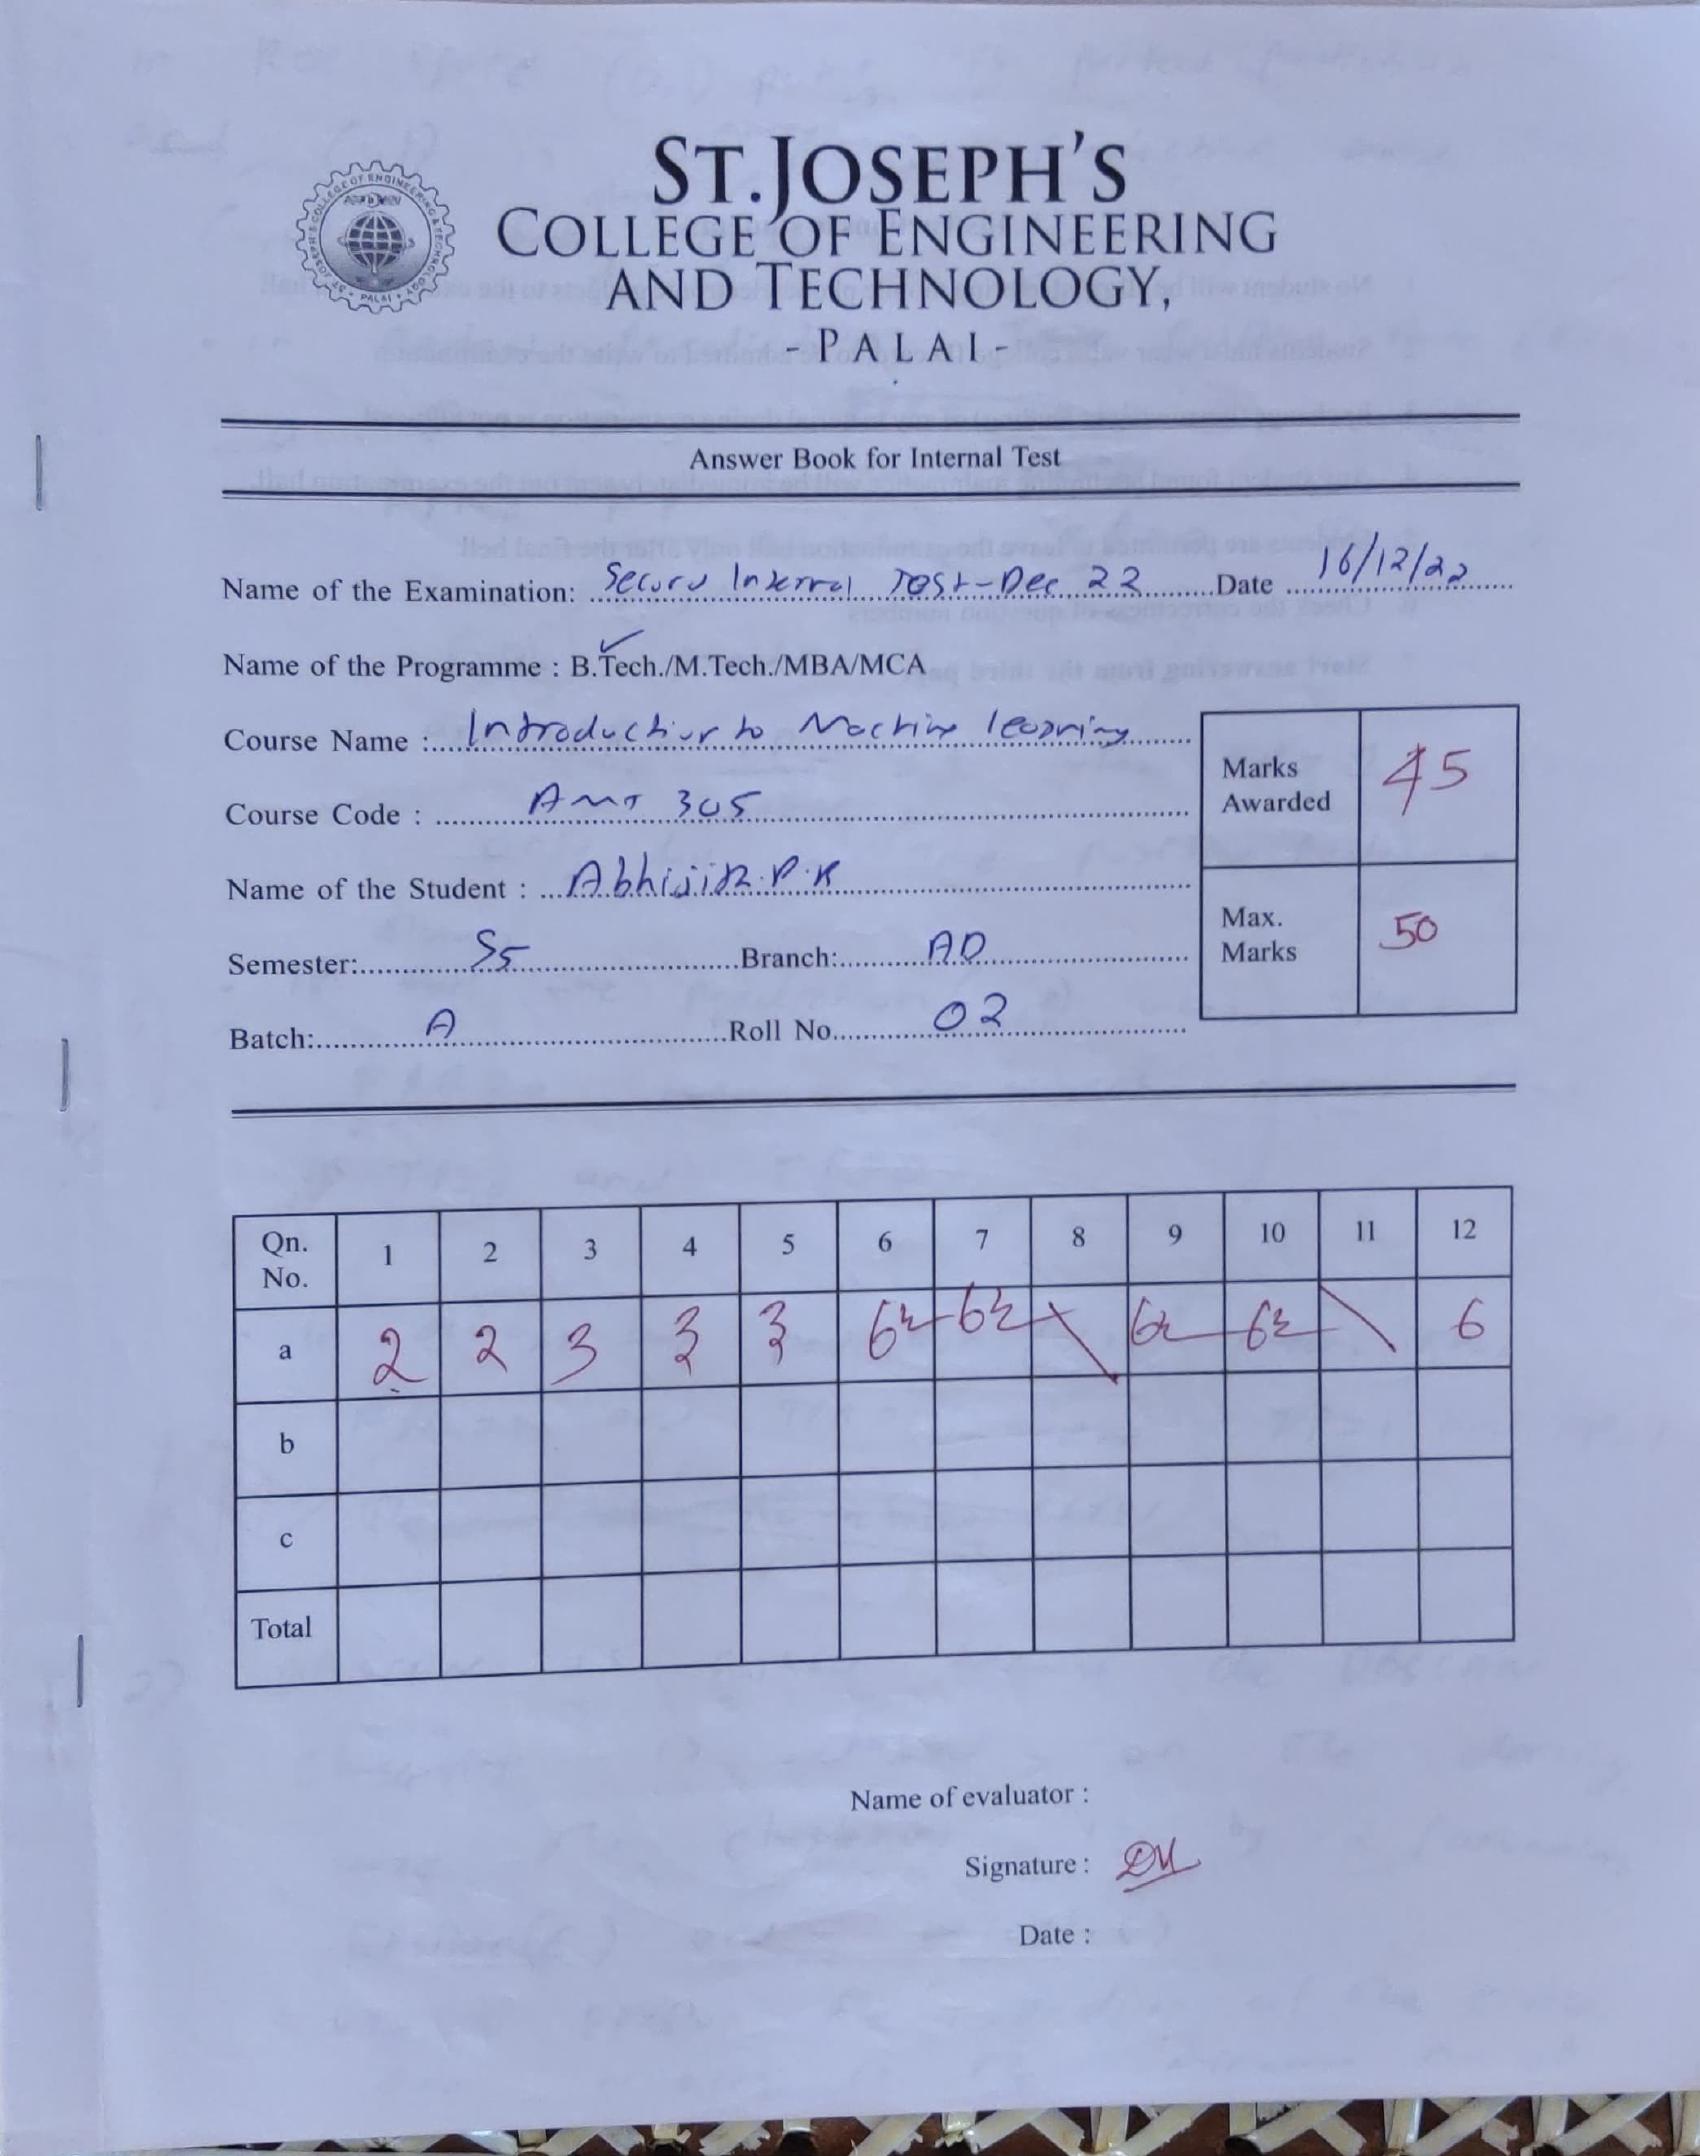 ST.JOSEPH'S
COLLEGE OF ENGINEERING
AND TECHNOLOGY,
- PALAI -
Answer Book for Internal Test
Name of the Examination: Second Internal Test-Dec 22 Date 16/12/22
Name of the Programme : B.Tech./M.Tech./MBA/MCA
Course Name : Introduction to Machine learning
Course Code : AMT 305
Marks Awarded 45
Name of the Student : Abhijith.P.K
Semester: S5 Branch: AD
Max. Marks 50
Batch: A Roll No. 02
Qn. No. 1 2 3 4 5 6 7 8 9 10 11 12
a 2 2 3 3 3 6½ 6½ \ 6½ 6½ \ 6
b
c
Total
Name of evaluator :
Signature :
Date :